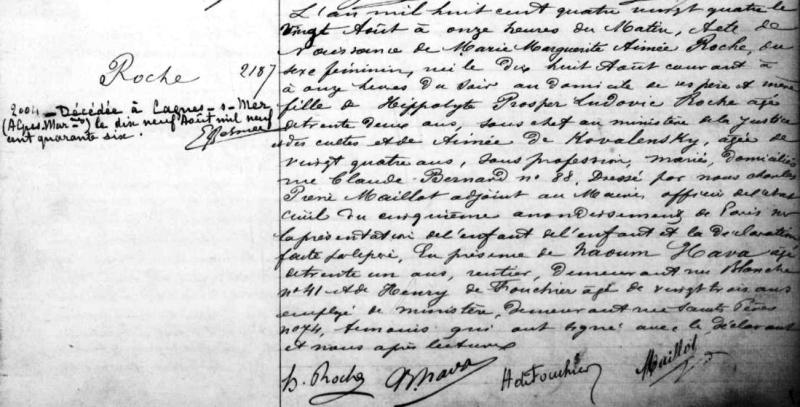 Roche 2187
2004 - Décédée à Cagnes-s-Mer
(Alpes Mar-mes) le dix neuf Août mil neuf
cent quarante six.
L'an mil huit cent quatre vingt quatre le
vingt Août à onze heures du Matin, Acte de
Naissance de Marie Marguerite Aimée Roche, du
sexe féminin, née le dix huit Août courant à
à onze heures du Soir au domicile de ses père et mère
fille de Hippolyte Prosper Ludovic Roche âgé
de trente deux ans, sous chef au ministère de la Justice
et des cultes et de Aimée de Kovalensky, âgée de
vingt quatre ans, sans profession, mariés, domiciliés
rue Claude Bernard n° 88. Dressé par nous Charles
René Maillot adjoint au Maire, officier de l'état
civil du cinquième arrondissement de Paris sur
la présentation de l'enfant de l'enfant et la déclaration
faite par le père, En présence de Naoum Hava âgé
de trente un ans, rentier, demeurant rue Blanche
n° 41 et de Henry de Fouchier âgé de vingt trois ans
employé de ministère, demeurant rue Saints Pères
n° 74, témoins qui ont signé avec le déclarant
et nous après lecture
h. Roche N Hava H de Fouchier Maillot